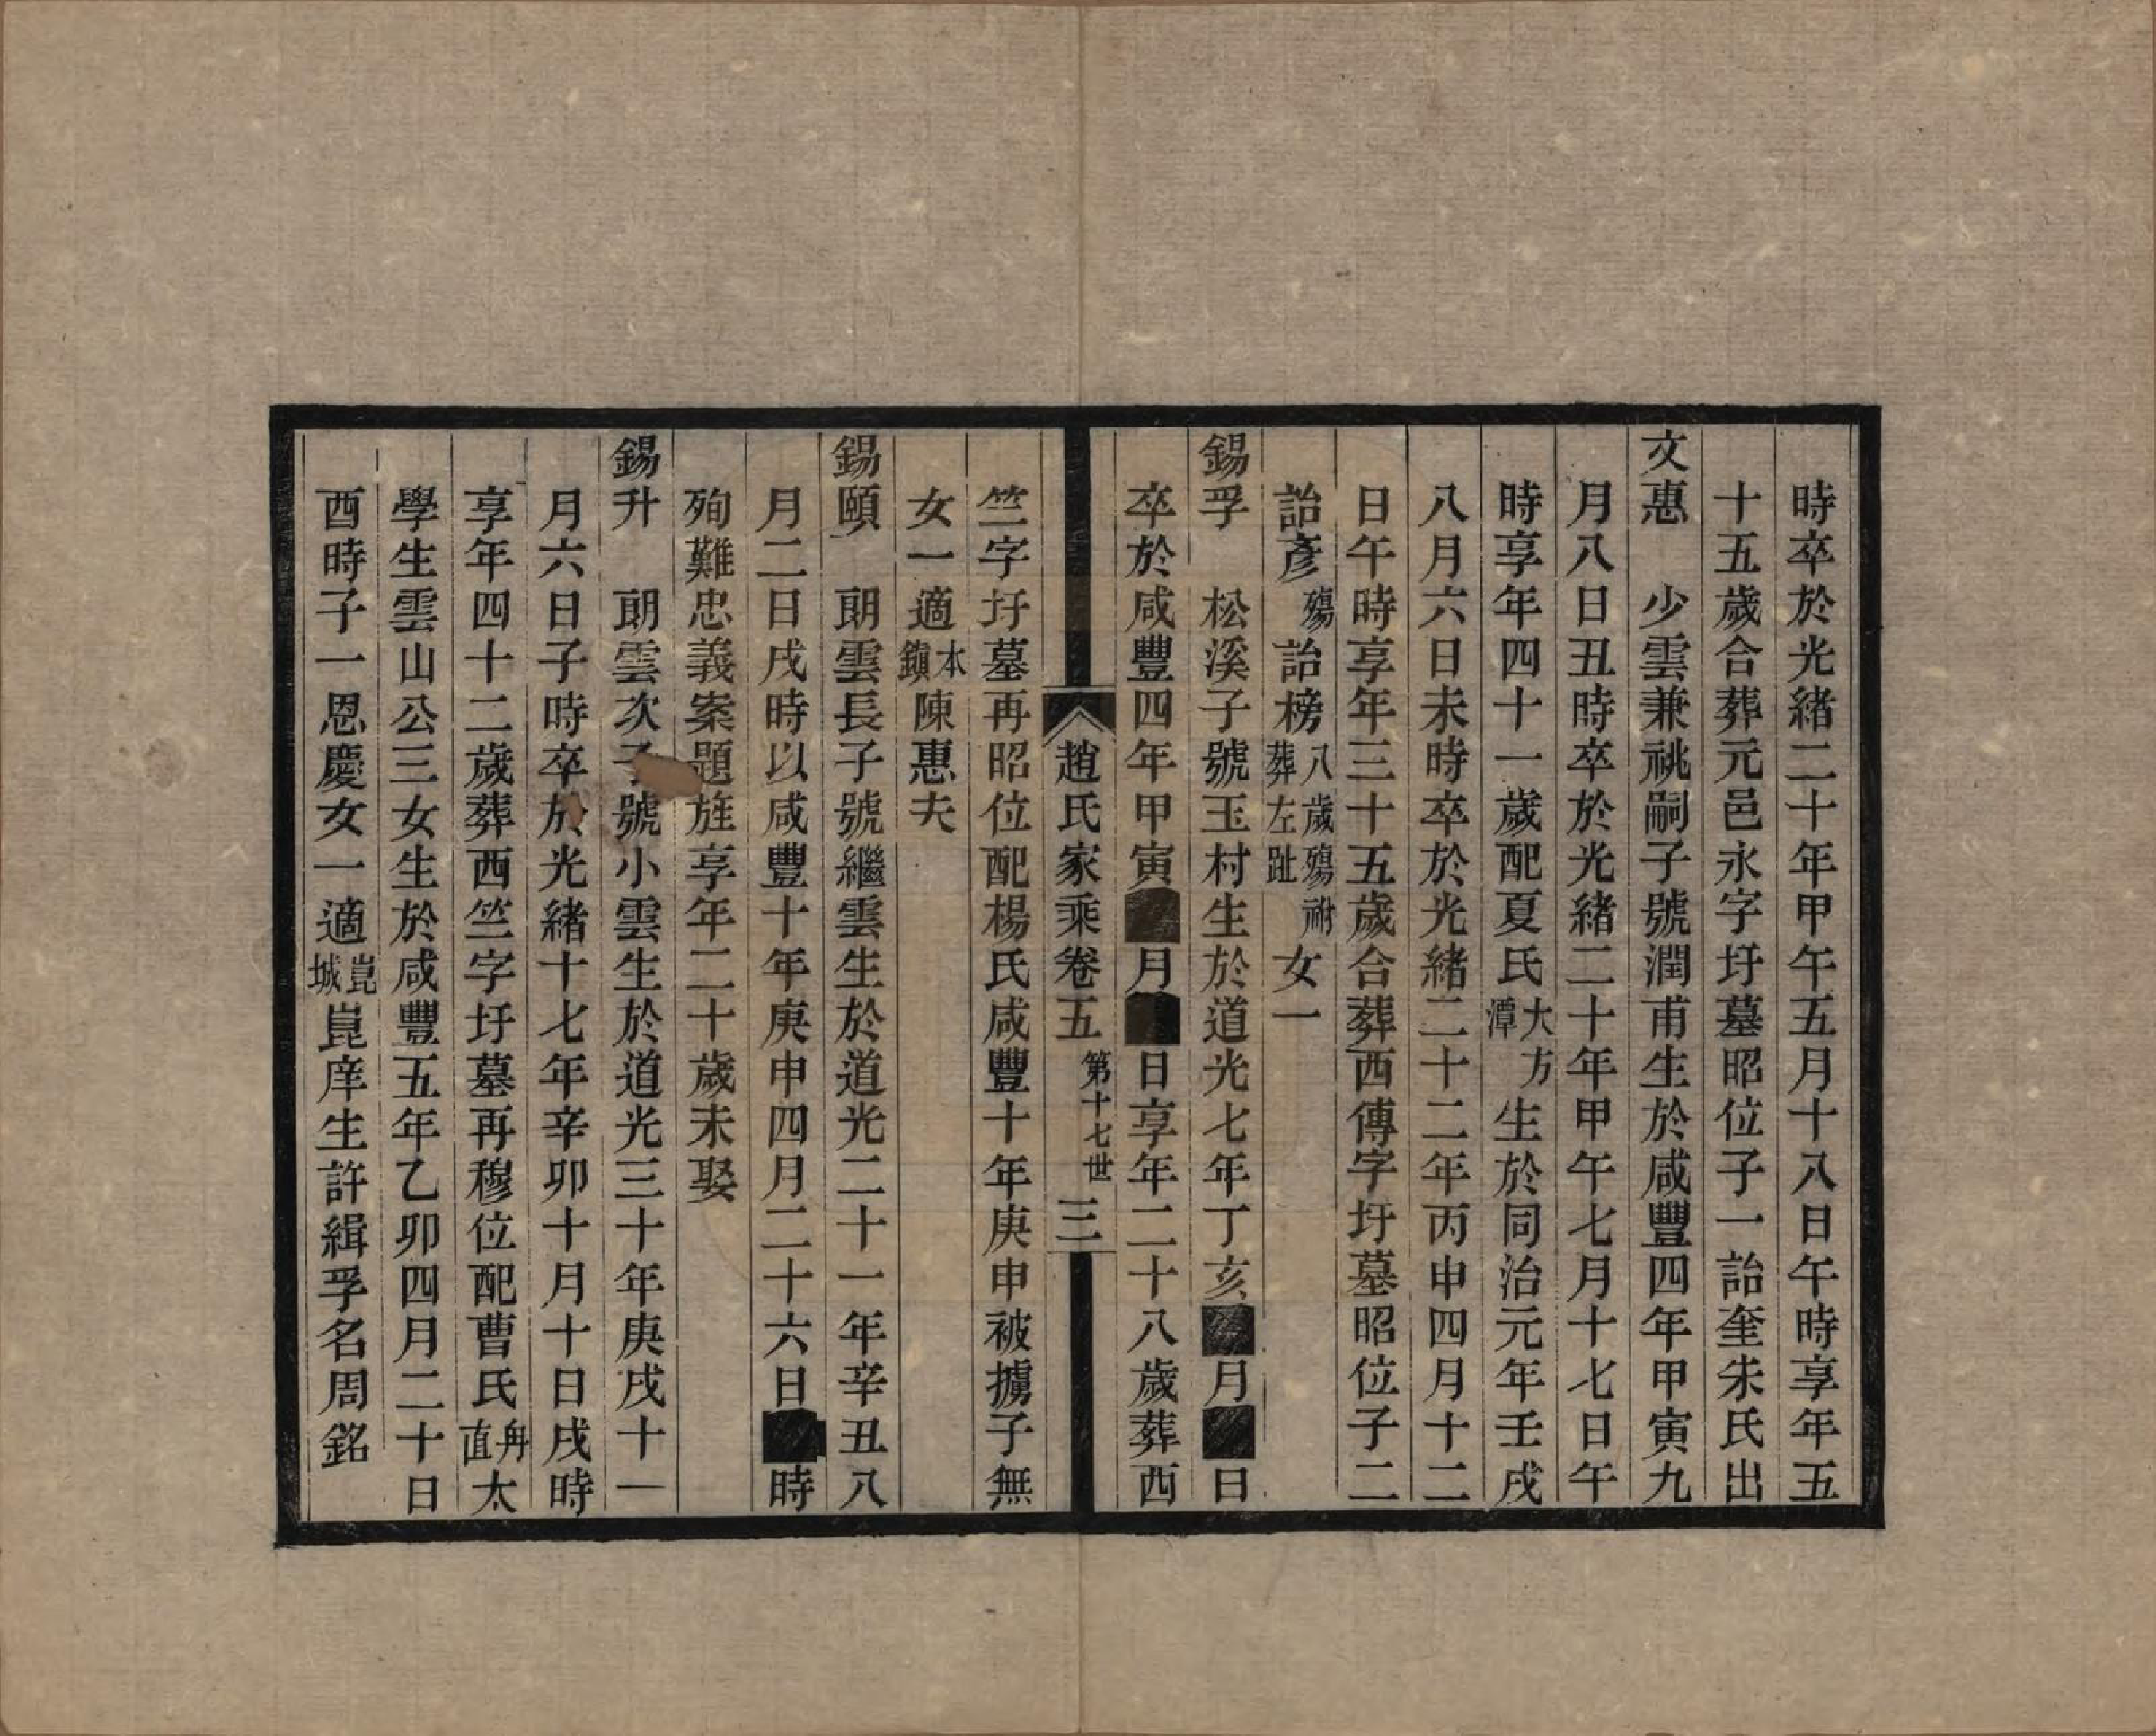 時卒於光緒二十年甲午五月十八日午時享年五
十五歲合葬元邑永字圩墓昭位子一詒奎朱氏出
文惠　少雲兼祧嗣子號潤甫生於咸豐四年甲寅九
月八日丑時卒於光緒二十年甲午七月十七日午
時享年四十一歲配夏氏大方潭生於同治元年壬戌
八月六日未時卒於光緒二十二年丙申四月十二
日午時享年三十五歲合葬西傳字圩墓昭位子二
詒彥殤詒榜八歲殤祔葬左趾女一
錫孚　松溪子號玉村生於道光七年丁亥■月■日
卒於咸豐四年甲寅■月■日享年二十八歲葬西
趙氏家乘卷五　第十七世　三
竺字圩墓再昭位配楊氏咸豐十年庚申被擄子無
女一適本鎮陳惠夫
錫頤　朗雲長子號繼雲生於道光二十一年辛丑八
月二日戌時以咸豐十年庚申四月二十六日■時
殉難忠義案題旌享年二十歲未娶
錫升　朗雲次子號小雲生於道光三十年庚戌十一
月六日子時卒於光緒十七年辛卯十月十日戌時
享年四十二歲葬西竺字圩墓再穆位配曹氏甪直太
學生雲山公三女生於咸豐五年乙卯四月二十日
酉時子一恩慶女一適崑城崑庠生許緝孚名周銘